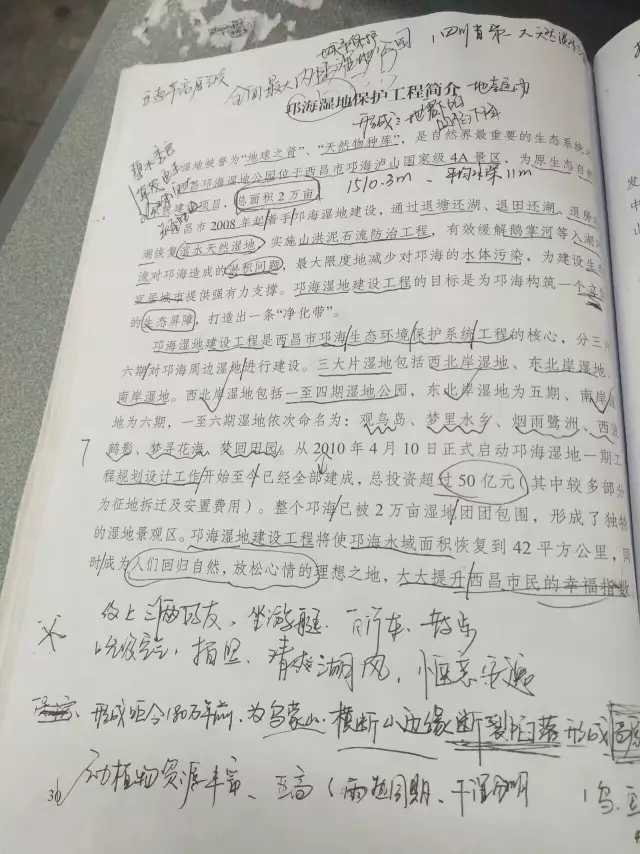 全国最大内陆
城市湿地公园
四川省第一大天然淡
邛海湿地保护工程简介
形成:地震下的
湿地被誉为“地球之肾”、“天然物种库”,是自然界最重要的生态系统之
昌邛海湿地公园位于西昌市邛海泸山国家级 4A 景区,为原生态自然
建项目,总面积 2 万亩,
1510.3m、平均水深 11m
昌市 2008 年起着手邛海湿地建设,通过退塘还湖、退田还湖、退房
湖恢复滨水天然湿地,实施山洪泥石流防治工程,有效缓解鹅掌河等入湖
流对邛海造成的淤积问题,最大限度地减少对邛海的水体污染,为建设生态
宜居城市提供强有力支撑。邛海湿地建设工程的目标是为邛海构筑一个
的生态屏障,打造出一条“净化带”。
邛海湿地建设工程是西昌市邛海生态环境保护系统工程的核心,分三片
六期对邛海周边湿地进行建设。三大片湿地包括西北岸湿地、东北岸湿地、
南岸湿地。西北岸湿地包括一至四期湿地公园,东北岸湿地为五期、南岸
地为六期,一至六期湿地依次命名为:观鸟岛、梦里水乡、烟雨鹭洲、西
鹤影、梦寻花海、梦回田园。从 2010 年 4 月 10 日正式启动邛海湿地一期工
程规划设计工作开始至今已经全部建成,总投资超过 50 亿元(其中较多部分
为征地拆迁及安置费用)。整个邛海已被 2 万亩湿地团团包围,形成了独特
的湿地景观区。邛海湿地建设工程将使邛海水域面积恢复到 42 平方公里,同
时成为人们回归自然,放松心情的理想之地,大大提升西昌市民的幸福指数
约上三两好友,坐游艇、散步
拍照、湖风,惬意安逸
形成距今180万年前,为乌蒙山、横断山边缘断裂陷落形成
动植物资源丰富、五高(雨热同期、干湿分明
30